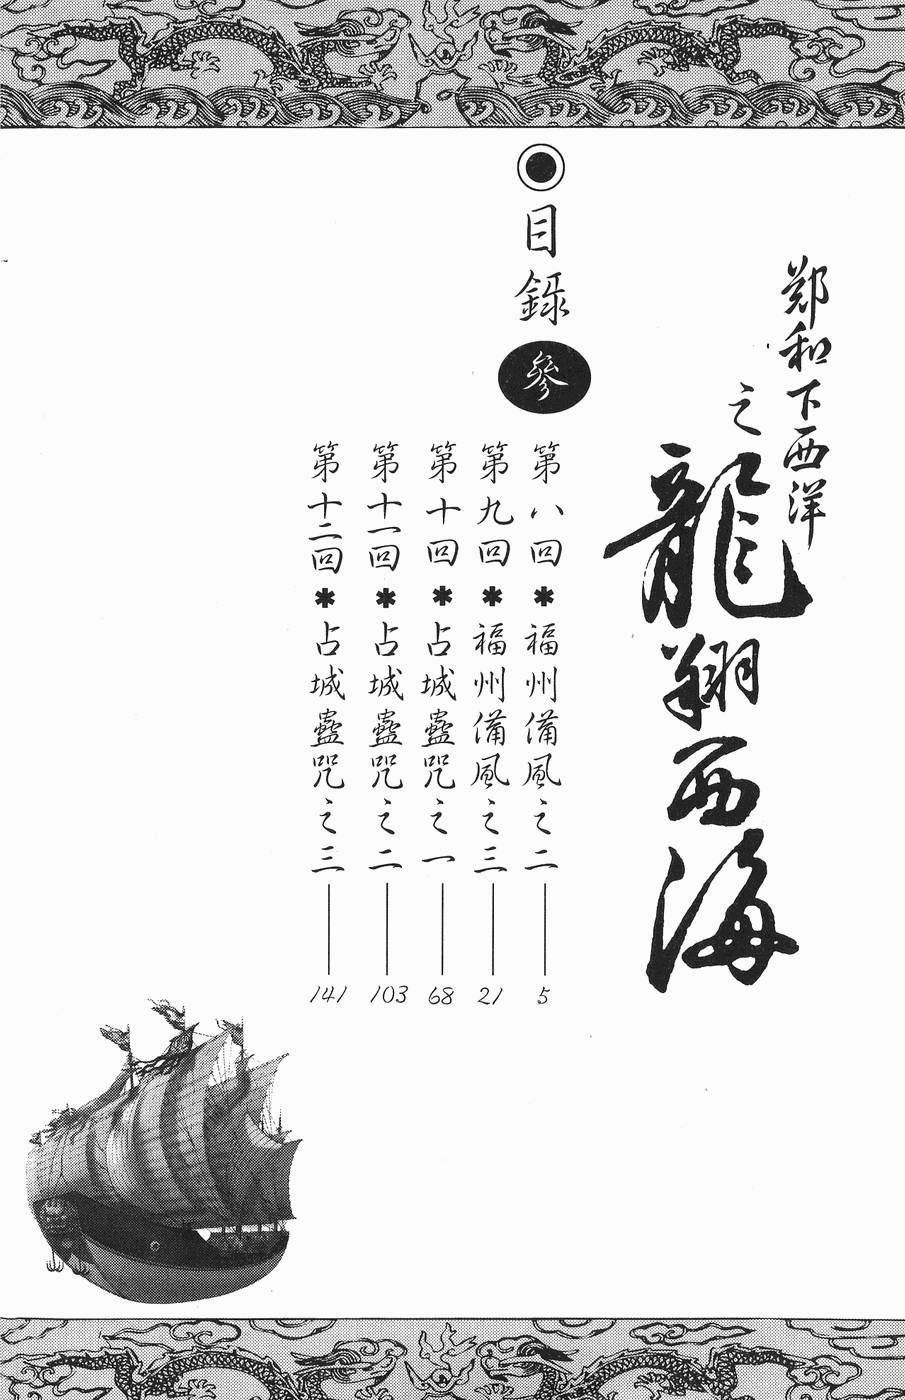 鄭和下西洋
之
龍翔西海
目錄
參
第八回＊福州備風之二——5
第九回＊福州備風之三——21
第十回＊占城蠱咒之一——68
第十一回＊占城蠱咒之二——103
第十二回＊占城蠱咒之三——141